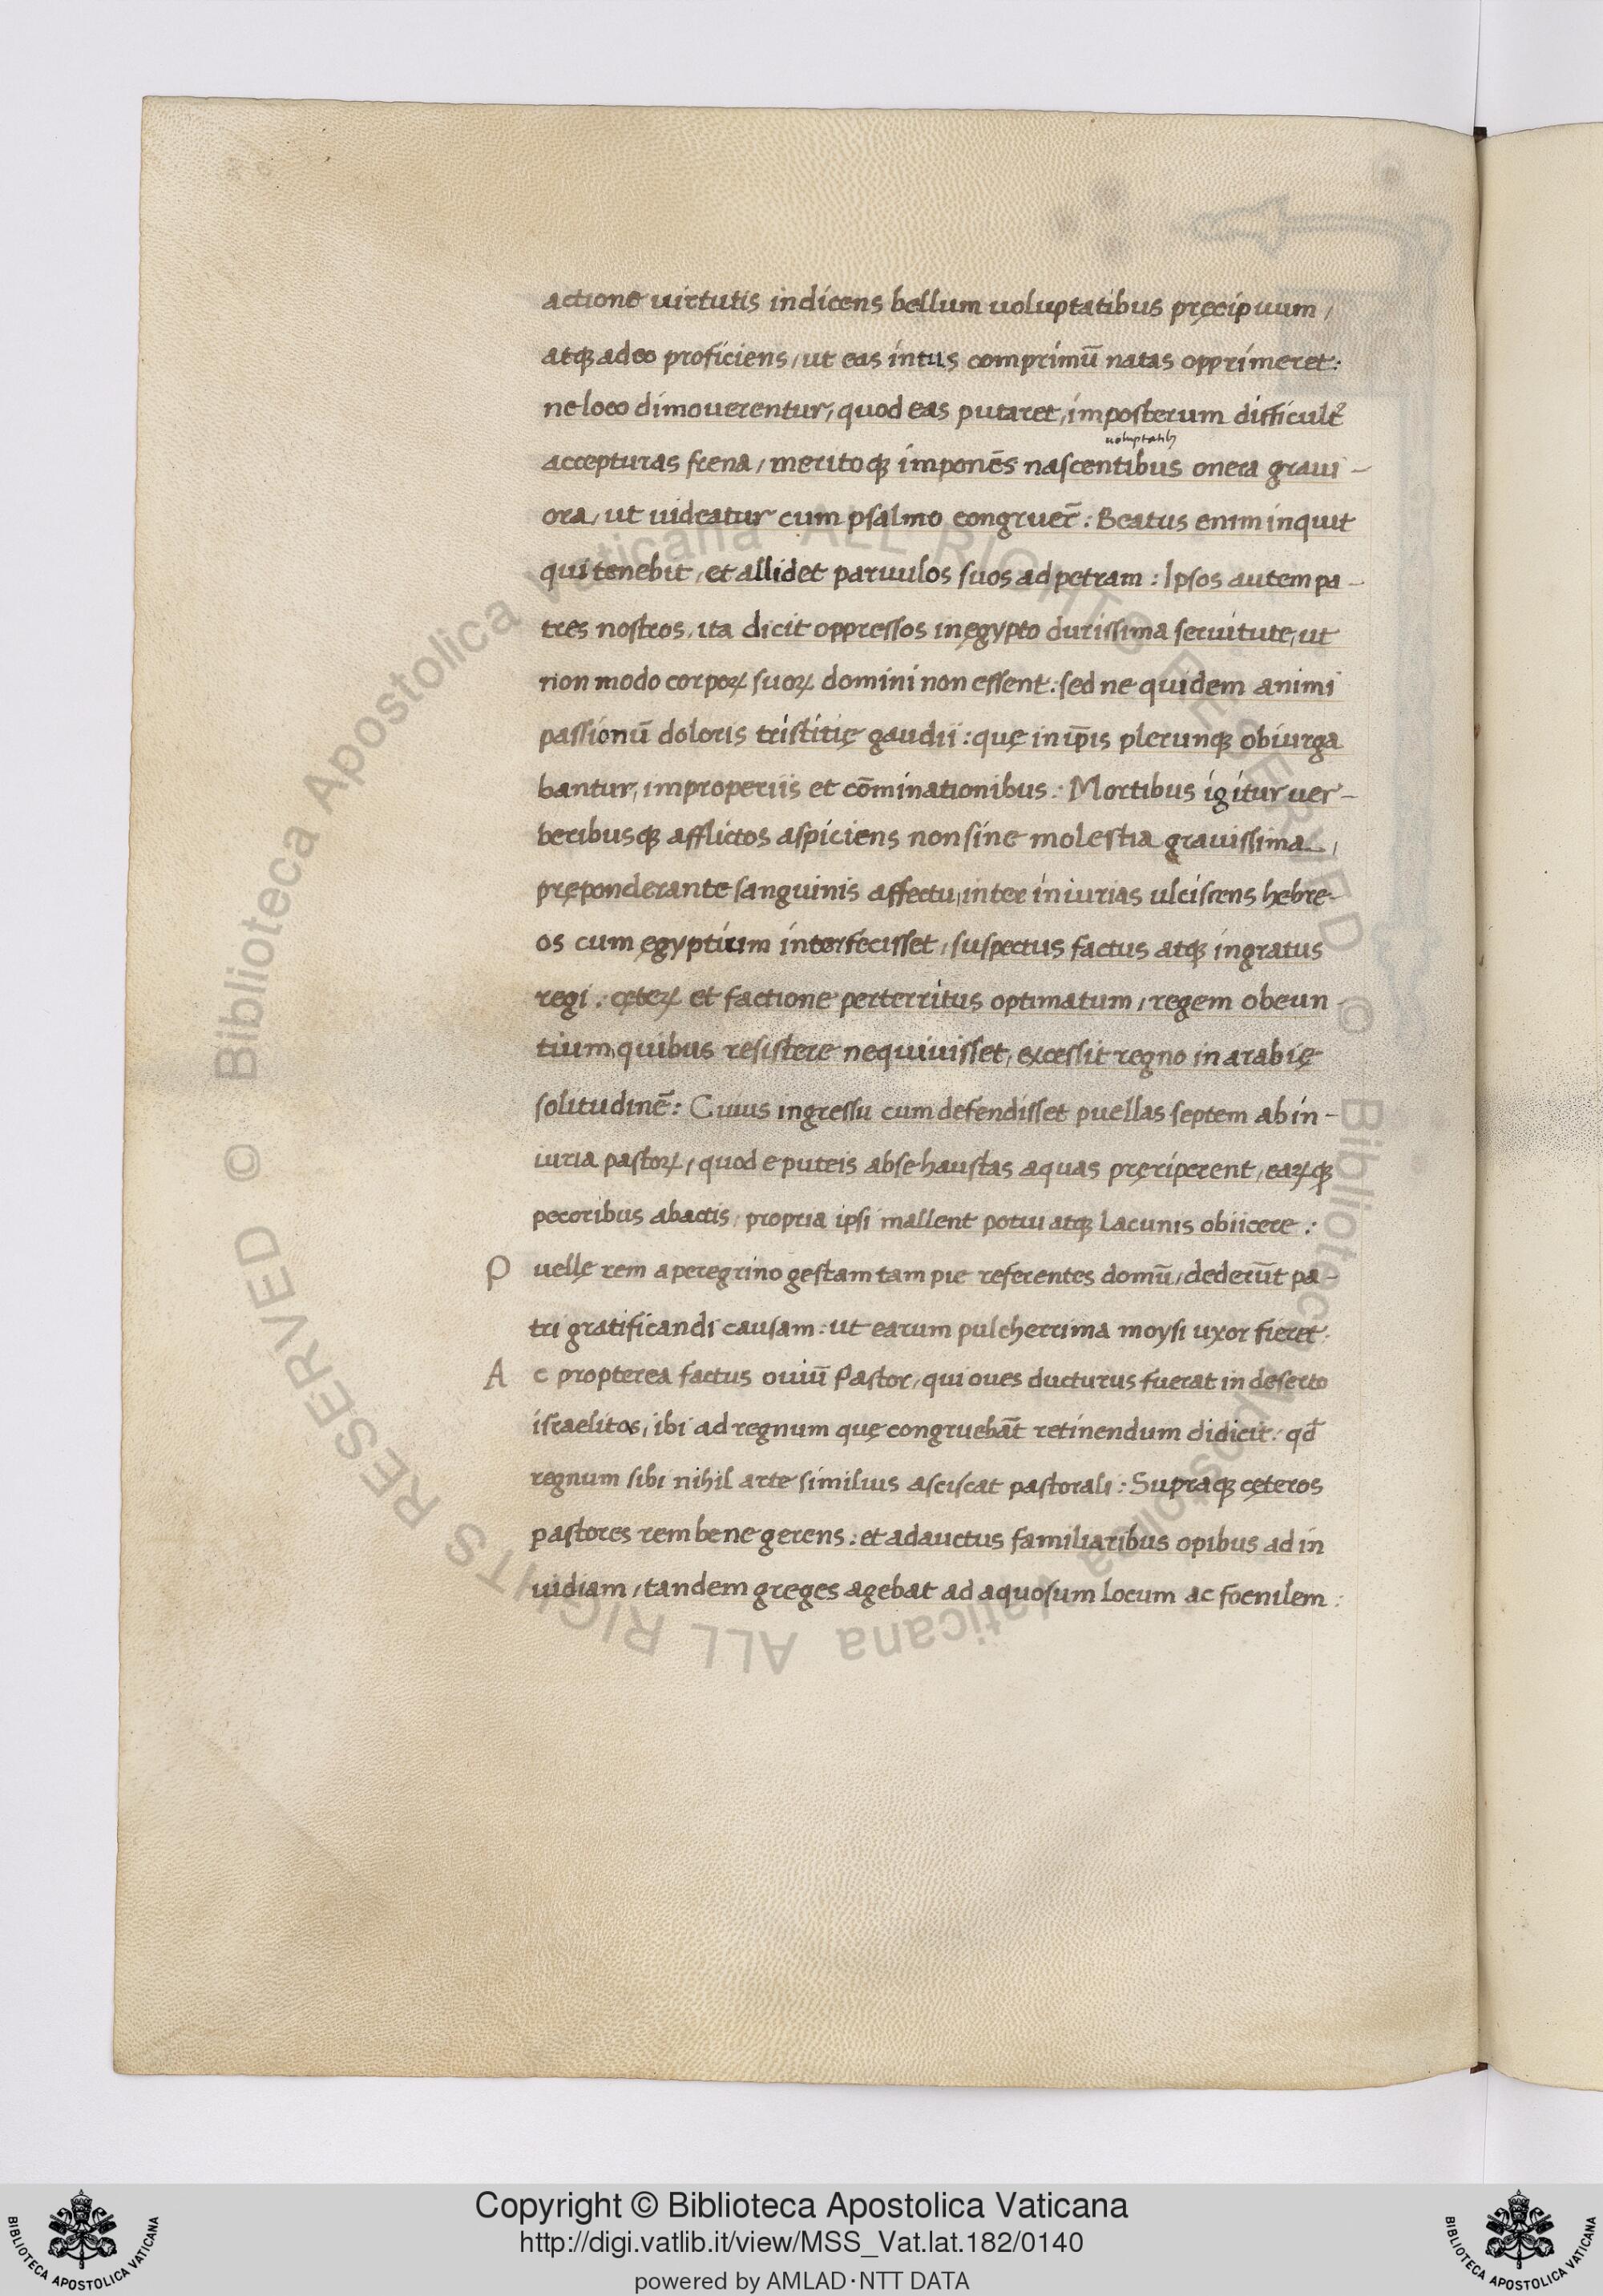 actione uirtutis indicens bellum uoluptatibus pręcipuum,
atq; adeo proficiens, ut eas intus comprimū natas opprimeret:
ne loco dimouerentur, quod eas putaret, imposterum difficult²
uoluptatib;
accepturas frena, meritoq; imponēs nascentibus onera graui-
ora, ut uideatur cum psalmo congruer̄: Beatus enim inquit
qui tenebit, et allidet paruulos suos ad petram: Ipsos autem pa-
tres nostros, ita dicit oppressos in ęgypto durissima seruitute, ut
non modo corpoꝝ suoꝝ domini non essent: sed ne quidem animi
passionū doloris tristitię gaudii: quę in ip̄is plerunq; obiurga
bantur, improperiis et cōminationibus: Mortibus igitur uer-
beribusq; afflictos aspiciens non sine molestia grauissima,
pręponderante sanguinis affectu, inter iniurias ulciscens hebre-
os cum ęgyptium interfecisset, suspectus factus atq; ingratus
regi: cęteꝝ et factione perterritus optimatum, regem obeun
tium, quibus resistere nequiuisset, excessit regno in arabię
solitudinē: Cuius ingressu cum defendisset puellas septem ab in-
iuria pastoꝝ, quod e puteis abse haustas aquas pręriperent, eaꝝq;
pecoribus abactis, propria ipsi mallent potu atq; lacunis obiicere:
Puellę rem a peregrino gestam tam pie referentes domū, dederūt pa-
tri gratificandi causam: ut earum pulcherrima moysi uxor fieret:
Ac propterea factus ouiū Pastor, qui oues ducturus fuerat in deserto
israelitos, ibi ad regnum quę congruebāt retinendum didicit: qd̄
regnum sibi nihil arte similius asciscat pastorali: Supraq; cęteros
pastores rem bene gerens: et adauctus familiaribus opibus ad in
uidiam, tandem greges agebat ad aquosum locum ac foenilem:
© Biblioteca Apostolica Vaticana ALL RIGHTS RESERVED © Biblioteca Apostolica Vaticana ALL RIGHTS RESERVED
BIBLIOTECA APOSTOLICA VATICANA
Copyright © Biblioteca Apostolica Vaticana
http://digi.vatlib.it/view/MSS_Vat.lat.182/0140
powered by AMLAD·NTT DATA
BIBLIOTECA APOSTOLICA VATICANA